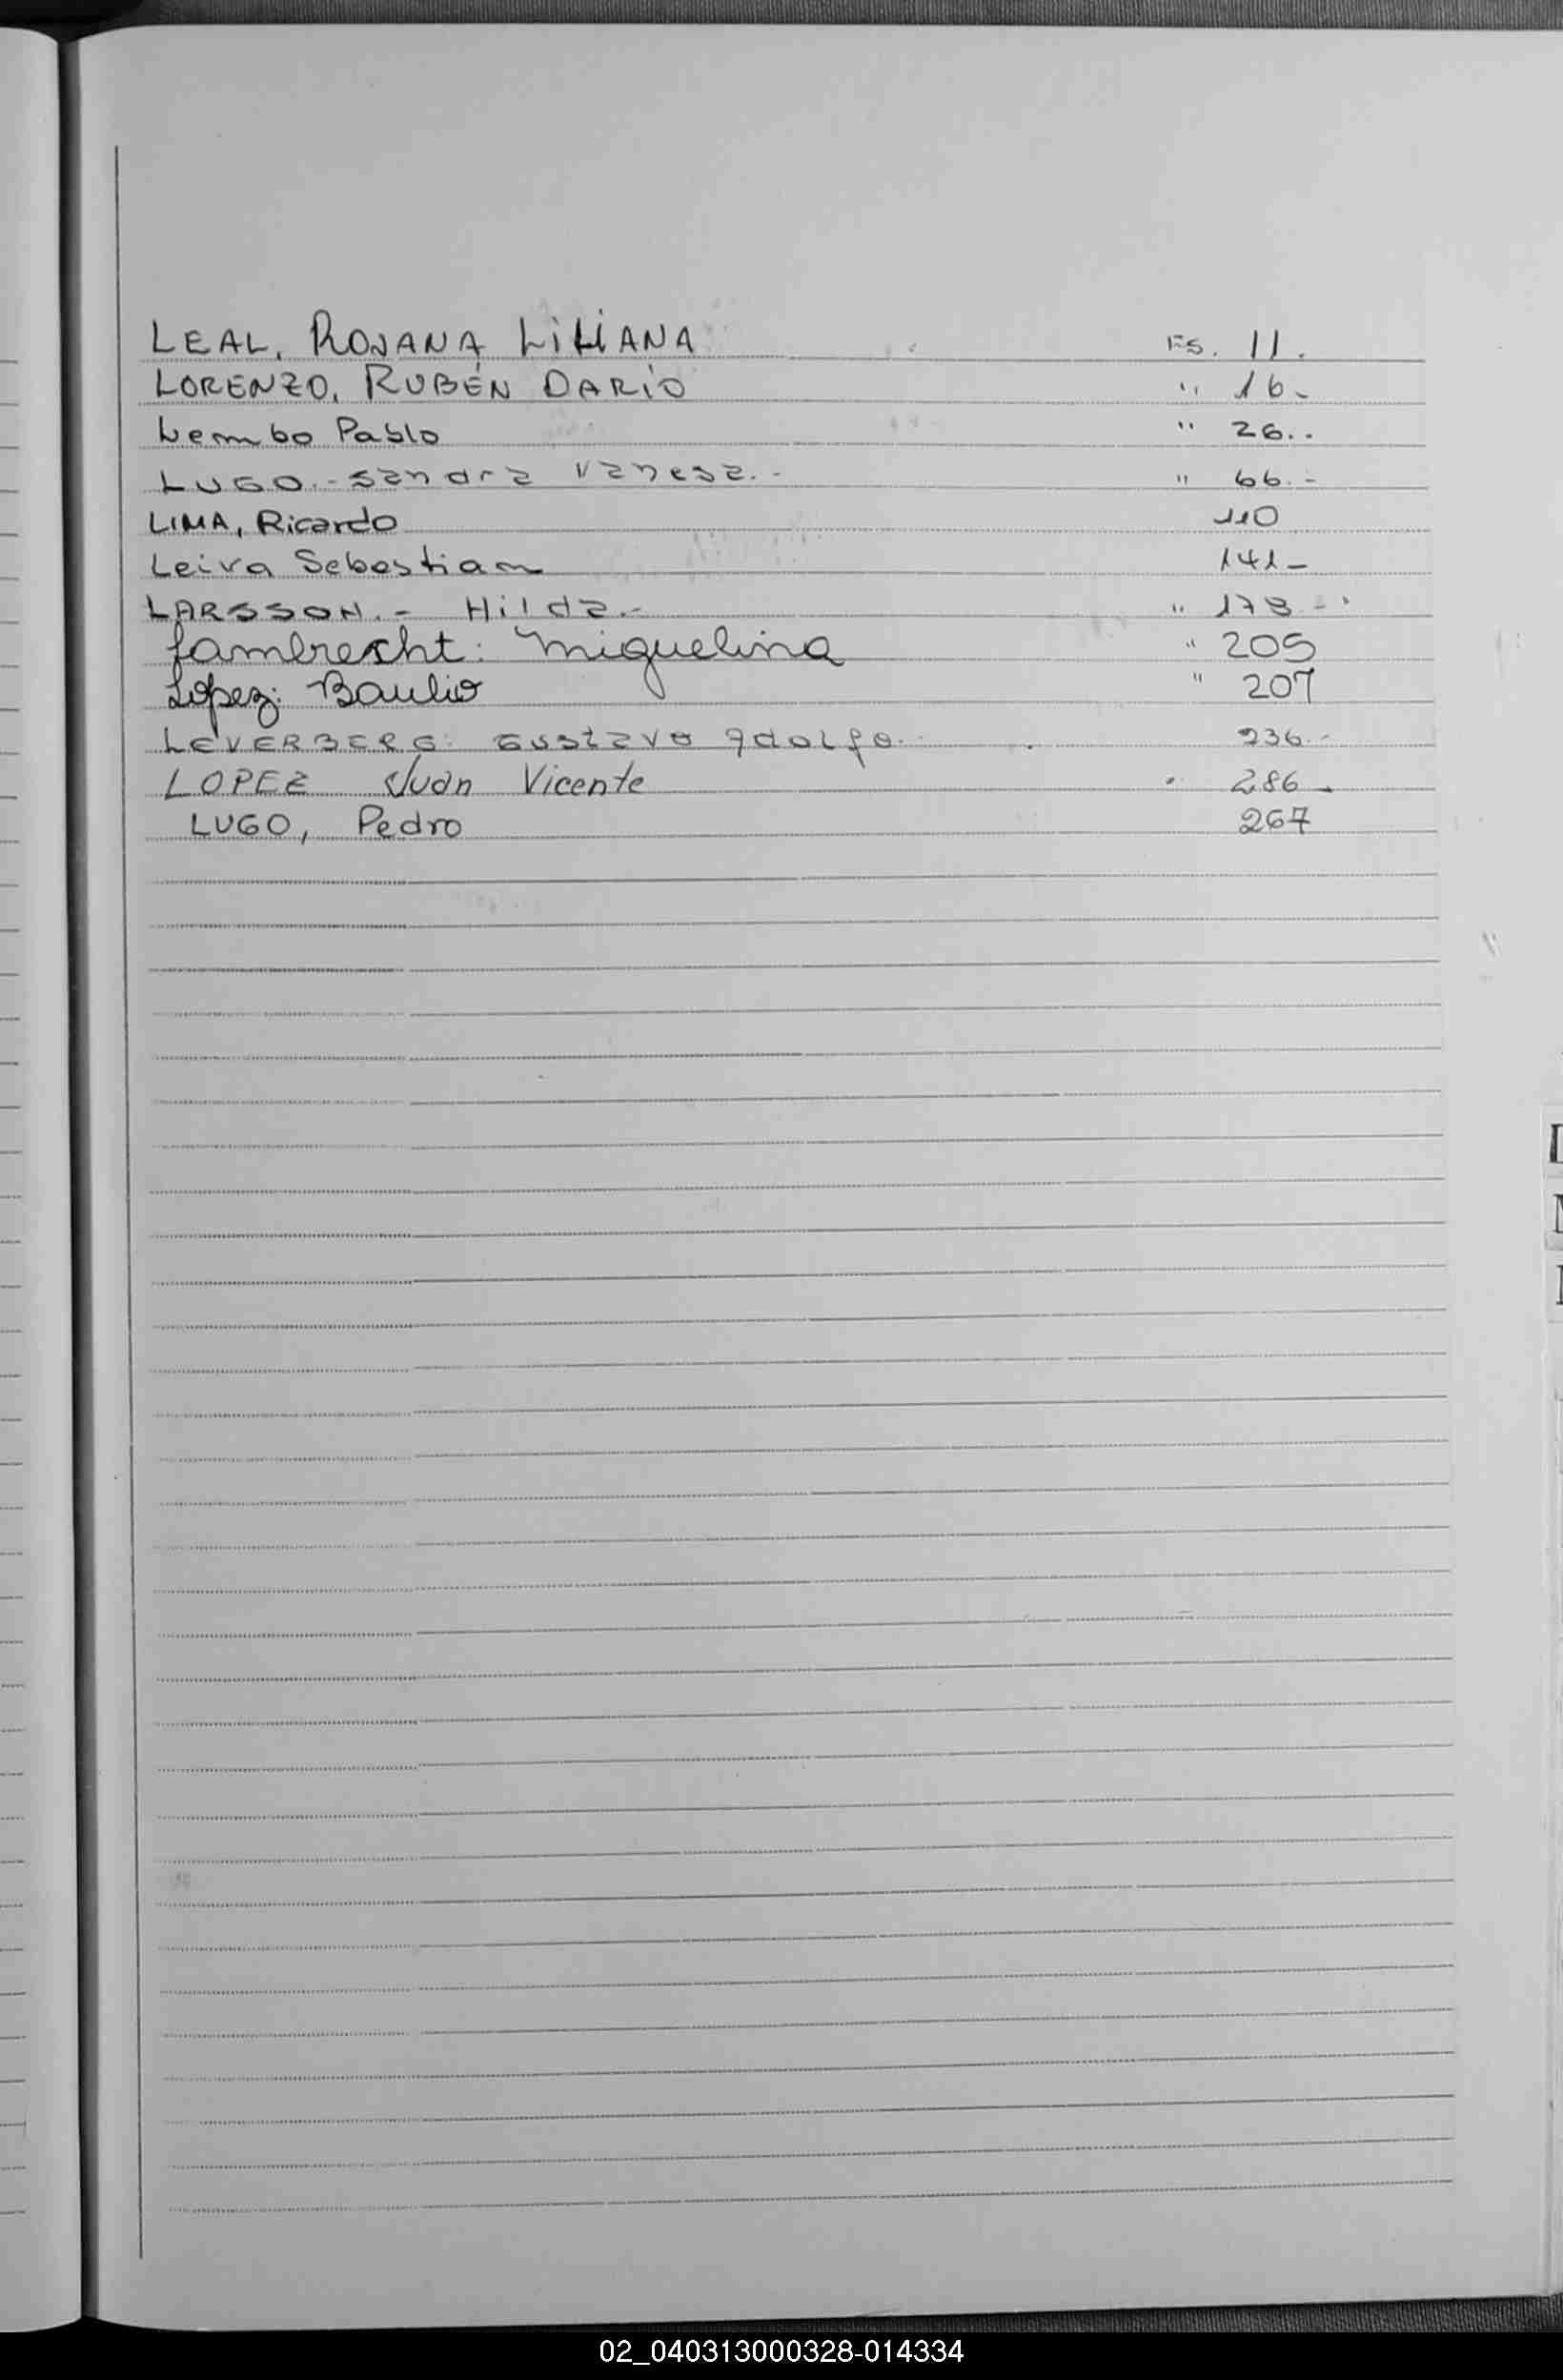 LEAL, ROSANA LILIANA Fs. 11.
LORENZO, RUBÉN DARÍO " 16-
Lembo Pablo " 26..
LUGO.- Sandra Vanesa.- " 66.-
LIMA, Ricardo 110
Leiva Sebastian 141-
LARSSON.- Hilda.- " 178-
Lambrecht: Miguelina " 205
Lopez: Baulio " 207
LEVERBERG: Gustavo Adolfo. 236.-
LOPEZ Juan Vicente 286.
LUGO, Pedro 267
02_040313000328-014334